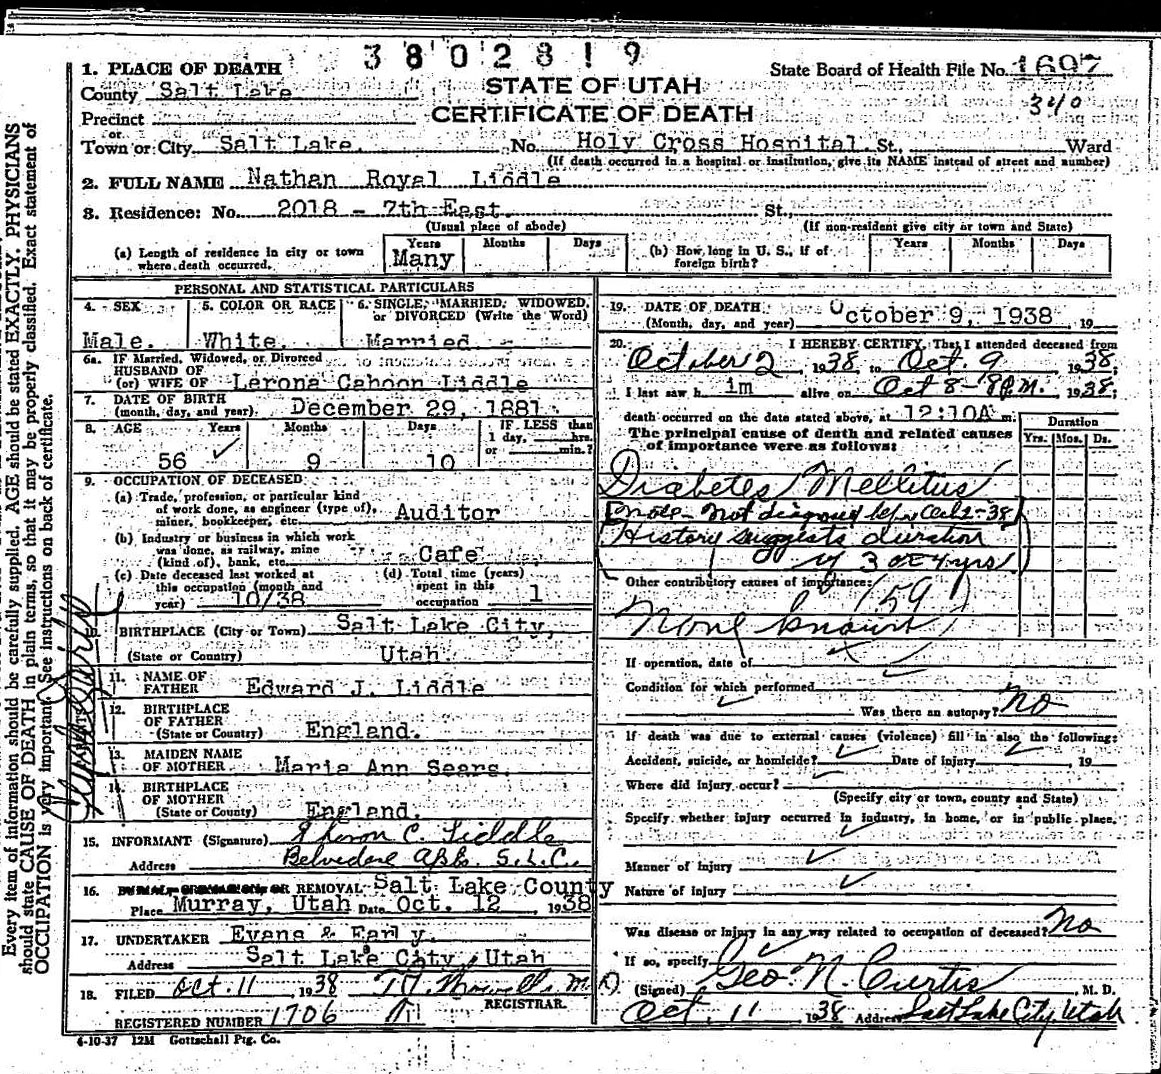 3802819
1. PLACE OF DEATH
State Board of Health File No. 1697
County Salt Lake
STATE OF UTAH
340
Precinct
CERTIFICATE OF DEATH
or
Town or City Salt Lake. No. Holy Cross Hospital St., Ward
(If death occurred in a hospital or institution, give its NAME instead of street and number)
2. FULL NAME Nathan Royal Liddle
3. Residence: No. 2018 - 7th East. St.,
(Usual place of abode) (If non-resident give city or town and State)
(a) Length of residence in city or town where death occurred. Years Many Months Days
(b) How long in U. S., if of foreign birth? Years Months Days
PERSONAL AND STATISTICAL PARTICULARS
4. SEX Male.
5. COLOR OR RACE White.
6. SINGLE, MARRIED, WIDOWED, or DIVORCED (Write the Word) Married.
6a. IF Married, Widowed, or Divorced
HUSBAND OF
(or) WIFE OF Lerona Cahoon Liddle
7. DATE OF BIRTH
(month, day, and year) December 29, 1881.
8. AGE Years 56 Months 9 Days 10 IF LESS than 1 day, hrs. or min.?
9. OCCUPATION OF DECEASED
(a) Trade, profession, or particular kind
of work done, as engineer (type of), miner, bookkeeper, etc. Auditor
(b) Industry or business in which work
was done, as railway, mine (kind of), bank, etc. Cafe
(c) Date deceased last worked at this occupation (month and year) 10/38
(d) Total time (years) spent in this occupation 1
10. BIRTHPLACE (City or Town) Salt Lake City,
(State or Country) Utah.
11. NAME OF FATHER Edward J. Liddle
12. BIRTHPLACE OF FATHER (State or Country) England.
13. MAIDEN NAME OF MOTHER Maria Ann Sears.
14. BIRTHPLACE OF MOTHER (State or County) England.
15. INFORMANT (Signature) C. Liddle
Address Belvedere Apts. S.L.C.
16. OR REMOVAL Salt Lake County
Place Murray, Utah Date Oct. 12 1938
17. UNDERTAKER Evans & Early.
Address Salt Lake City, Utah
18. FILED Oct. 11, 1938 M.D.
REGISTRAR.
REGISTERED NUMBER 1706
4-10-37 12M Gottschall Ptg. Co.
19. DATE OF DEATH
(Month, day, and year) October 9, 1938, 19
20. I HEREBY CERTIFY, That I attended deceased from
October 2, 1938, to Oct. 9 1938;
I last saw him alive on Oct 8 - 8 P.M. 1938;
death occurred on the date stated above, at 12:10A m.
The principal cause of death and related causes
of importance were as follows:
Duration
Yrs. Mos. Ds.
Diabetes Mellitus
Note - Not diagnosed before Oct 2-38
History suggests duration
of 3 or 4 yrs
Other contributory causes of importance:
59
None known
If operation, date of
Condition for which performed
Was there an autopsy? No
If death was due to external causes (violence) fill in also the following:
Accident, suicide, or homicide? Date of injury 19
Where did injury occur?
(Specify city or town, county and State)
Specify whether injury occurred in industry, in home, or in public place.
Manner of injury
Nature of injury
Was disease or injury in any way related to occupation of deceased? No
If so, specify
(Signed) Geo. N. Curtis, M. D.
Oct. 11 1938 Address Salt Lake City, Utah
Every item of information should be carefully supplied. AGE should be stated EXACTLY. PHYSICIANS
should state CAUSE OF DEATH in plain terms, so that it may be properly classified. Exact statement of
OCCUPATION is very important. See instructions on back of certificate.